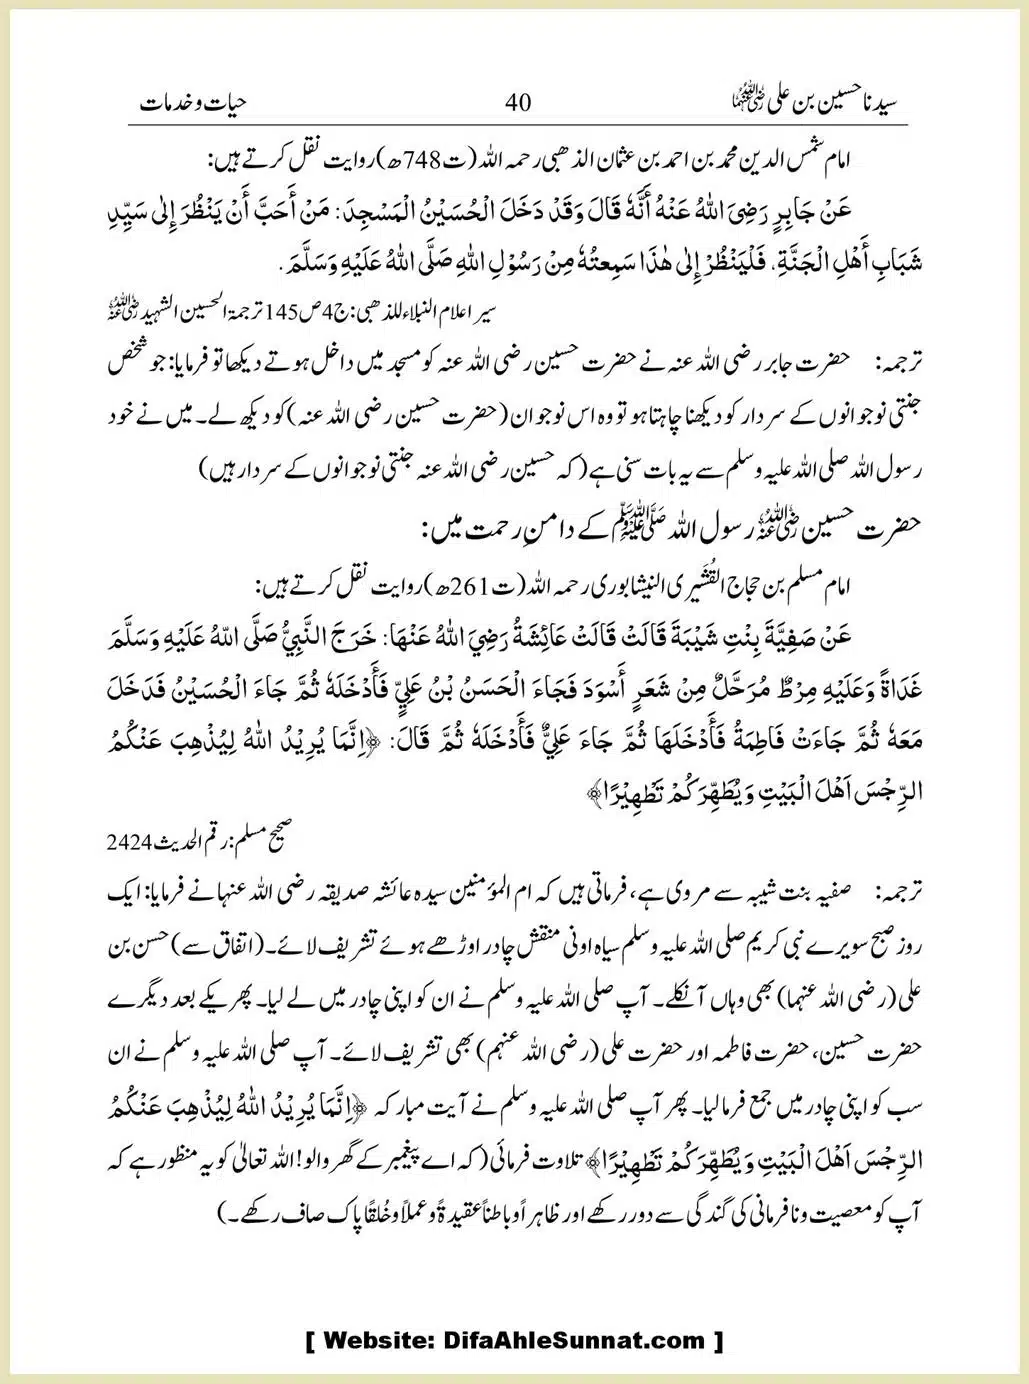 سیدنا حسین بن علی رضی اللہ عنہما 40 حیات و خدمات
امام شمس الدین محمد بن احمد بن عثمان الذھبی رحمہ اللہ (ت748ھ) روایت نقل کرتے ہیں:
عَنْ جَابِرٍ رَضِیَ اللهُ عَنْهُ أَنَّهٗ قَالَ وَقَدْ دَخَلَ الْحُسَیْنُ الْمَسْجِدَ: مَنْ أَحَبَّ أَنْ یَنْظُرَ إِلٰی سَیِّدِ
شَبَابِ أَهْلِ الْجَنَّةِ، فَلْیَنْظُرْ إِلٰی هٰذَا سَمِعْتُهٗ مِنْ رَسُوْلِ اللهِ صَلَّی اللهُ عَلَیْهِ وَسَلَّمَ.
سیر اعلام النبلاء للذھبی: ج4 ص145 ترجمۃ الحسین الشہید رضی اللہ عنہ
ترجمہ: حضرت جابر رضی اللہ عنہ نے حضرت حسین رضی اللہ عنہ کو مسجد میں داخل ہوتے دیکھا تو فرمایا: جو شخص
جنتی نوجوانوں کے سردار کو دیکھنا چاہتا ہو تو وہ اس نوجوان (حضرت حسین رضی اللہ عنہ) کو دیکھ لے۔ میں نے خود
رسول اللہ صلی اللہ علیہ وسلم سے یہ بات سنی ہے (کہ حسین رضی اللہ عنہ جنتی نوجوانوں کے سردار ہیں)
حضرت حسین رضی اللہ عنہ رسول اللہ صلی اللہ علیہ وسلم کے دامنِ رحمت میں:
امام مسلم بن حجاج القُشَیری النیشابوری رحمہ اللہ (ت261ھ) روایت نقل کرتے ہیں:
عَنْ صَفِیَّةَ بِنْتِ شَیْبَةَ قَالَتْ قَالَتْ عَائِشَةُ رَضِيَ اللهُ عَنْهَا: خَرَجَ النَّبِيُّ صَلَّی اللّهُ عَلَیْهِ وَسَلَّمَ
غَدَاةً وَعَلَیْهِ مِرْطٌ مُرَحَّلٌ مِنْ شَعَرٍ أَسْوَدَ فَجَاءَ الْحَسَنُ بْنُ عَلِيٍّ فَأَدْخَلَهٗ ثُمَّ جَاءَ الْحُسَیْنُ فَدَخَلَ
مَعَهٗ ثُمَّ جَاءَتْ فَاطِمَةُ فَأَدْخَلَهَا ثُمَّ جَاءَ عَلِيٌّ فَأَدْخَلَهٗ ثُمَّ قَالَ: ﴿اِنَّمَا یُرِیْدُ اللهُ لِیُذْهِبَ عَنْکُمُ
الرِّجْسَ اَهْلَ الْبَیْتِ وَ یُطَهِّرَکُمْ تَطْهِیْرًا﴾
صحیح مسلم: رقم الحدیث 2424
ترجمہ: صفیہ بنت شیبہ سے مروی ہے، فرماتی ہیں کہ ام المؤمنین سیدہ عائشہ صدیقہ رضی اللہ عنہا نے فرمایا: ایک
روز صبح سویرے نبی کریم صلی اللہ علیہ وسلم سیاہ اونی منقش چادر اوڑھے ہوئے تشریف لائے۔ (اتفاق سے) حسن بن
علی (رضی اللہ عنہما) بھی وہاں آ نکلے۔ آپ صلی اللہ علیہ وسلم نے ان کو اپنی چادر میں لے لیا۔ پھر یکے بعد دیگرے
حضرت حسین، حضرت فاطمہ اور حضرت علی (رضی اللہ عنہم) بھی تشریف لائے۔ آپ صلی اللہ علیہ وسلم نے ان
سب کو اپنی چادر میں جمع فرما لیا۔ پھر آپ صلی اللہ علیہ وسلم نے آیت مبارکہ ﴿اِنَّمَا یُرِیْدُ اللهُ لِیُذْهِبَ عَنْکُمُ
الرِّجْسَ اَهْلَ الْبَیْتِ وَ یُطَهِّرَکُمْ تَطْهِیْرًا﴾ تلاوت فرمائی (کہ اے پیغمبر کے گھر والو! اللہ تعالیٰ کو یہ منظور ہے کہ
آپ کو معصیت و نافرمانی کی گندگی سے دور رکھے اور ظاہراً و باطناً عقیدۃً و عملاً و خُلقًا پاک صاف رکھے۔)
[ Website: DifaAhleSunnat.com ]